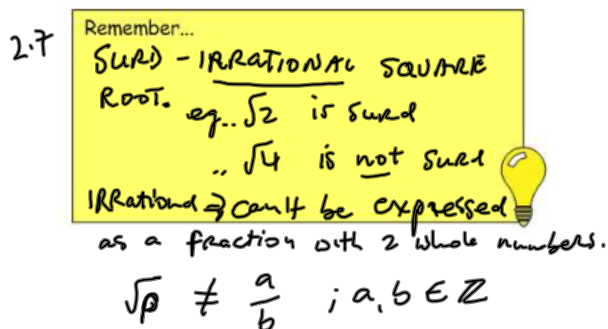 2.7
Remember...
SURD - IRRATIONAL SQUARE
ROOT.
eg.. √2 is surd
.. √4 is not surd
IRRational ⇒ can't be expressed
as a fraction with 2 whole numbers.
√p ≠ a/b ; a, b ∈ ℤ